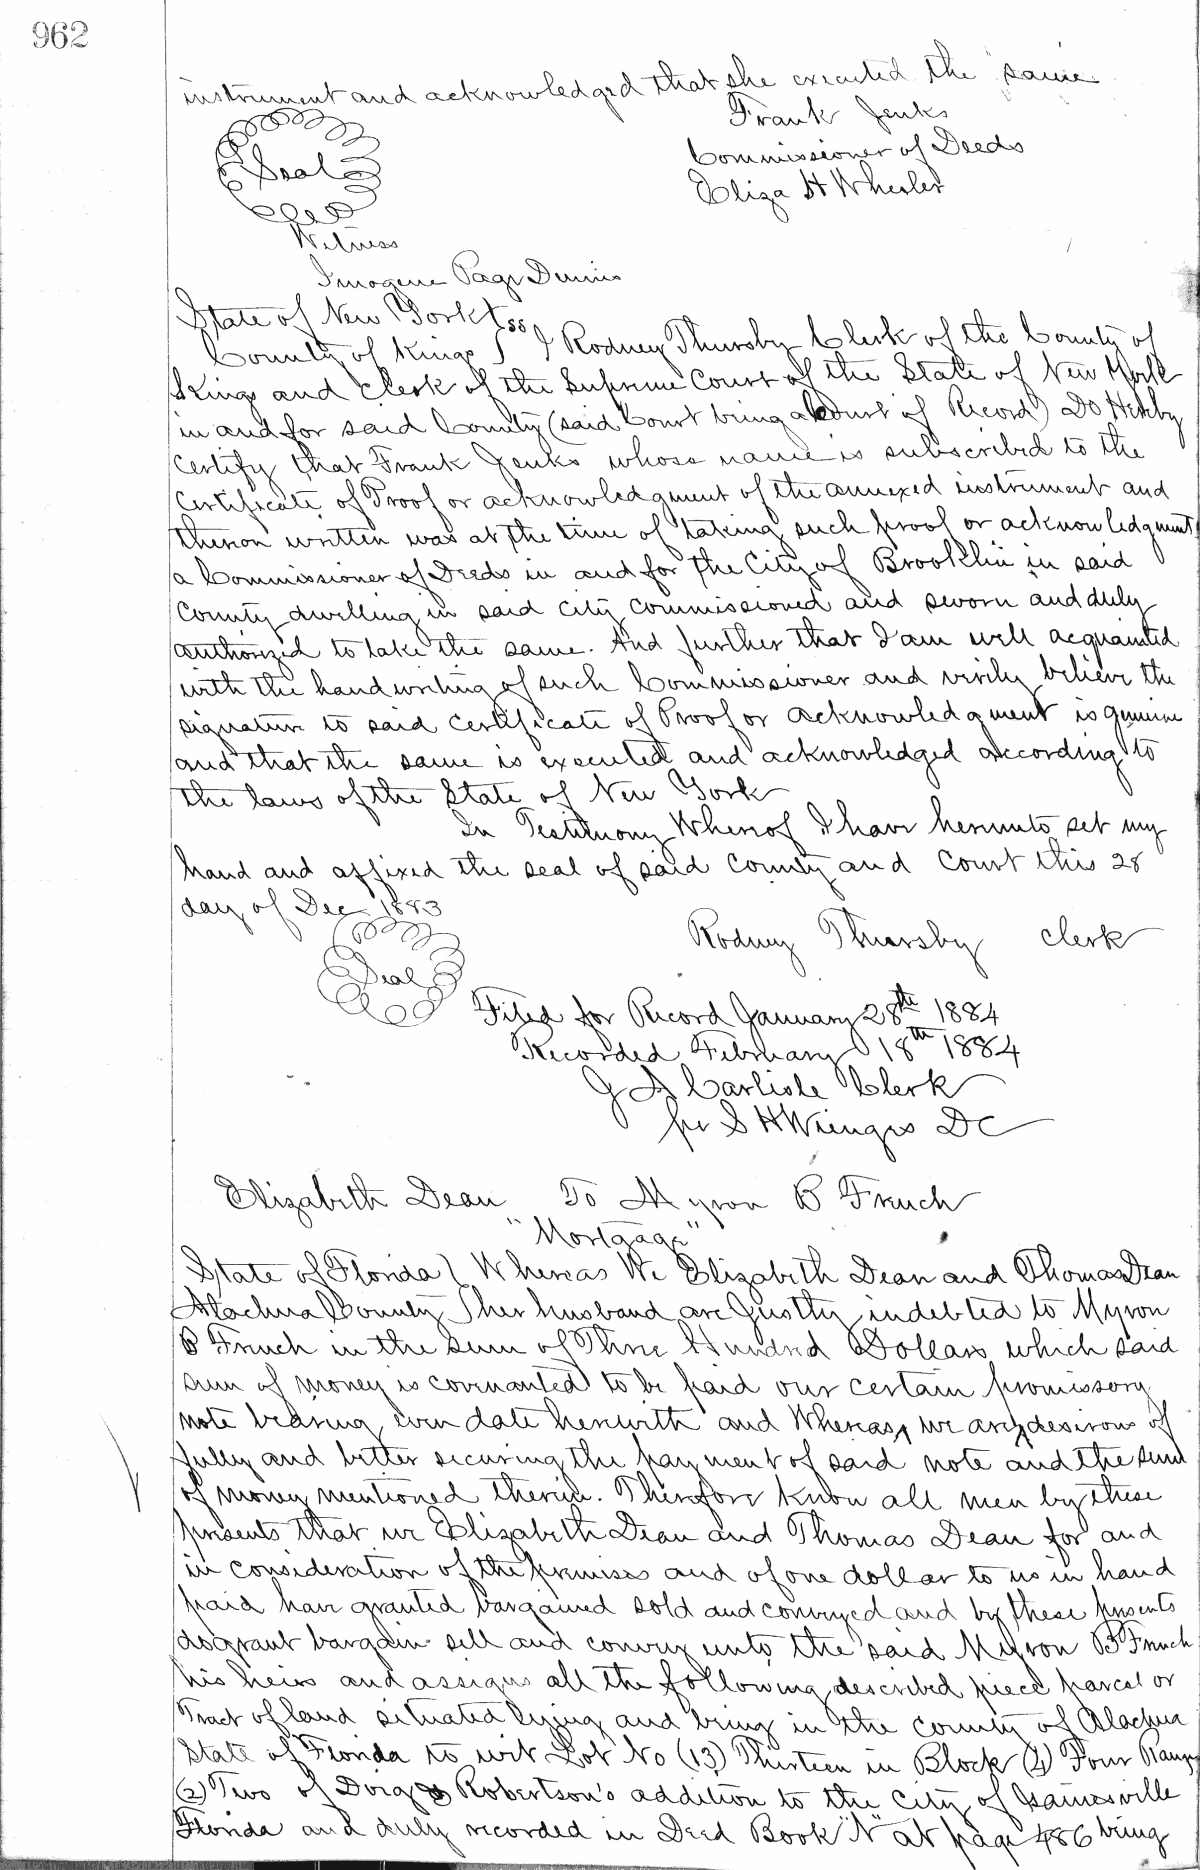 962
instrument and acknowledged that she executed the same
Frank Jenks
Commissioner of Deeds
Seal
Eliza H Wheeler
Witness
Imogene Page Dennis
State of New York } ss
County of Kings } I Rodney Thursby Clerk of the County of
Kings and Clerk of the Supreme Court of the State of New York
in and for said County (said Court being a Court of Record) Do Hereby
Certify that Frank Jenks whose name is subscribed to the
Certificate of Proof or acknowledgment of the annexed instrument and
thereon written was at the time of taking such proof or acknowledgment
a Commissioner of Deeds in and for the City of Brooklin in said
County dwelling in said city commissioned and sworn and duly
authorized to take the same. And further that I am well acquainted
with the handwriting of such Commissioner and verily believe the
signature to said Certificate of Proof or acknowledgment is genuine
and that the same is executed and acknowledged according to
the laws of the State of New York
In Testimony Whereof I have hereunto set my
hand and affixed the seal of said County and Court this 28
day of Dec 1883
Rodney Thursby Clerk
Seal
Filed for Record January 28th 1884
Recorded February 18th 1884
J A Carlisle Clerk
per S H Wienges DC
Elizabeth Dean To Myron B French
"Mortgage"
State of Florida } Whereas We Elizabeth Dean and Thomas Dean
Alachua County } her husband are Justly indebted to Myron
B French in the sum of Three Hundred Dollars which said
sum of money is covenanted to be paid our certain promissory
note bearing even date herewith and Whereas, we are desirous of
fully and better securing the payment of said note and the sum
of money mentioned therein. Therefore know all men by these
presents that we Elizabeth Dean and Thomas Dean for and
in consideration of the premises and of one dollar to us in hand
paid have granted bargained sold and conveyed and by these presents
do grant bargain sell and convey unto the said Myron B French
his heirs and assigns all the following described piece parcel or
Tract of land situated lying and being in the county of Alachua
State of Florida to wit Lot No (13) Thirteen in Block (4) Four Range
(2) Two of Doig & Robertson's addition to the City of Gainesville
Florida and duly recorded in Deed Book "N" at page 486 being